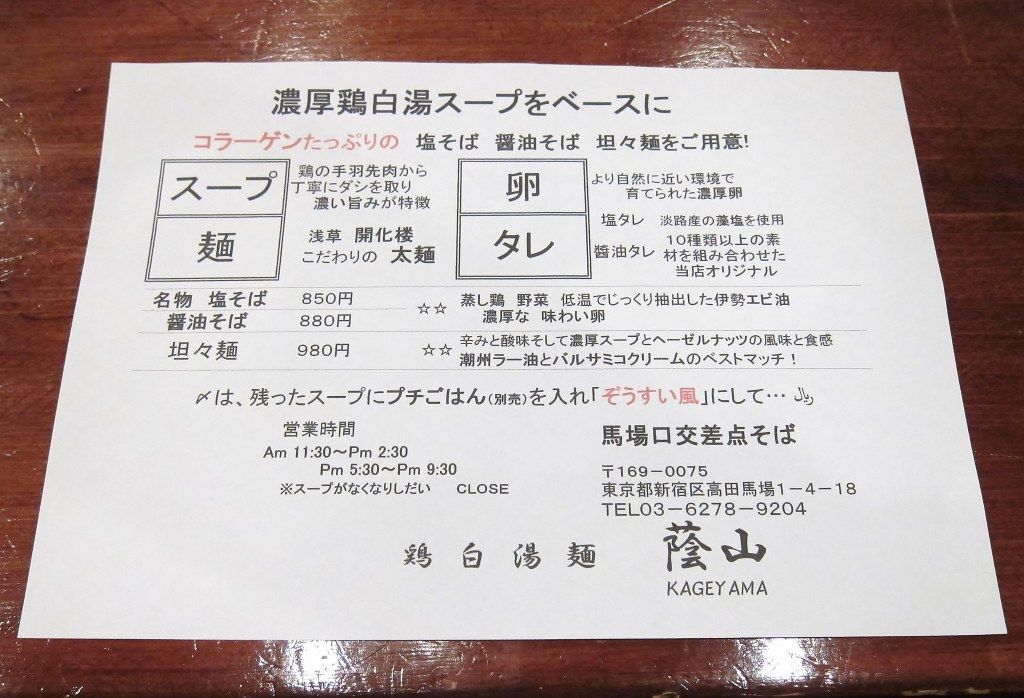 濃厚鶏白湯スープをベースに
コラーゲンたっぷりの 塩そば 醤油そば 坦々麺をご用意!
スープ
鶏の手羽先肉から
丁寧にダシを取り
濃い旨みが特徴
麺
浅草 開化楼
こだわりの 太麺
卵
より自然に近い環境で
育てられた濃厚卵
タレ
塩タレ 淡路産の藻塩を使用
醤油タレ 10種類以上の素
材を組み合わせた
当店オリジナル
名物 塩そば 850円
醤油そば 880円
☆☆ 蒸し鶏 野菜 低温でじっくり抽出した伊勢エビ油
濃厚な 味わい卵
坦々麺 980円
☆☆ 辛みと酸味そして濃厚スープとヘーゼルナッツの風味と食感
潮州ラー油とバルサミコクリームのベストマッチ!
〆は、残ったスープにプチごはん(別売)を入れ「ぞうすい風」にして… ﷼
営業時間
Am 11:30～Pm 2:30
Pm 5:30～Pm 9:30
※スープがなくなりしだい CLOSE
馬場口交差点そば
〒169－0075
東京都新宿区高田馬場1－4－18
TEL03－6278－9204
鶏白湯麺 蔭山
KAGEYAMA